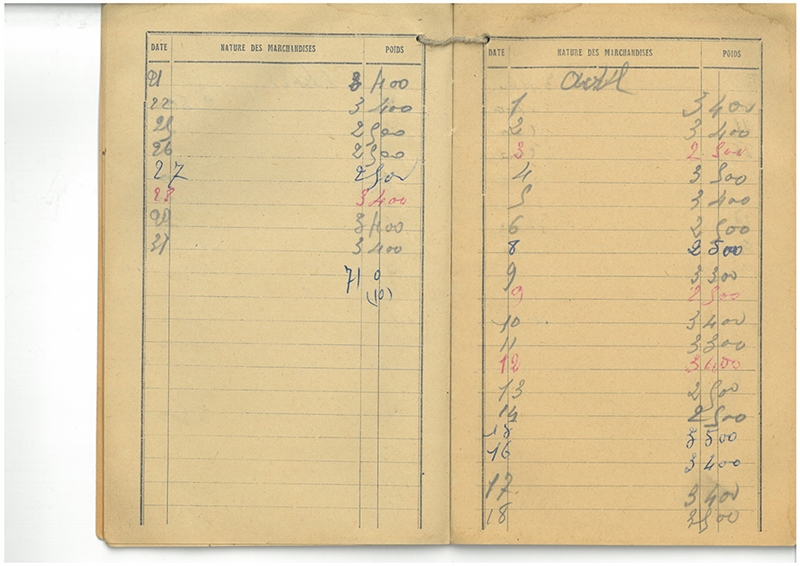 DATE NATURE DES MARCHANDISES POIDS
21 3 400
22 3 400
25 2 500
26 2 500
27 2 500
28 3 400
29 3 400
31 3 400
71 0
(10)
DATE NATURE DES MARCHANDISES POIDS
Avril
1 3 400
2 3 400
3 2 500
4 3 500
5 3 400
6 2 500
8 2 500
9 3 300
9 2 500
10 3 400
11 3 300
12 3 400
13 2 500
14 2 500
15 3 500
16 3 400
17 3 400
18 500